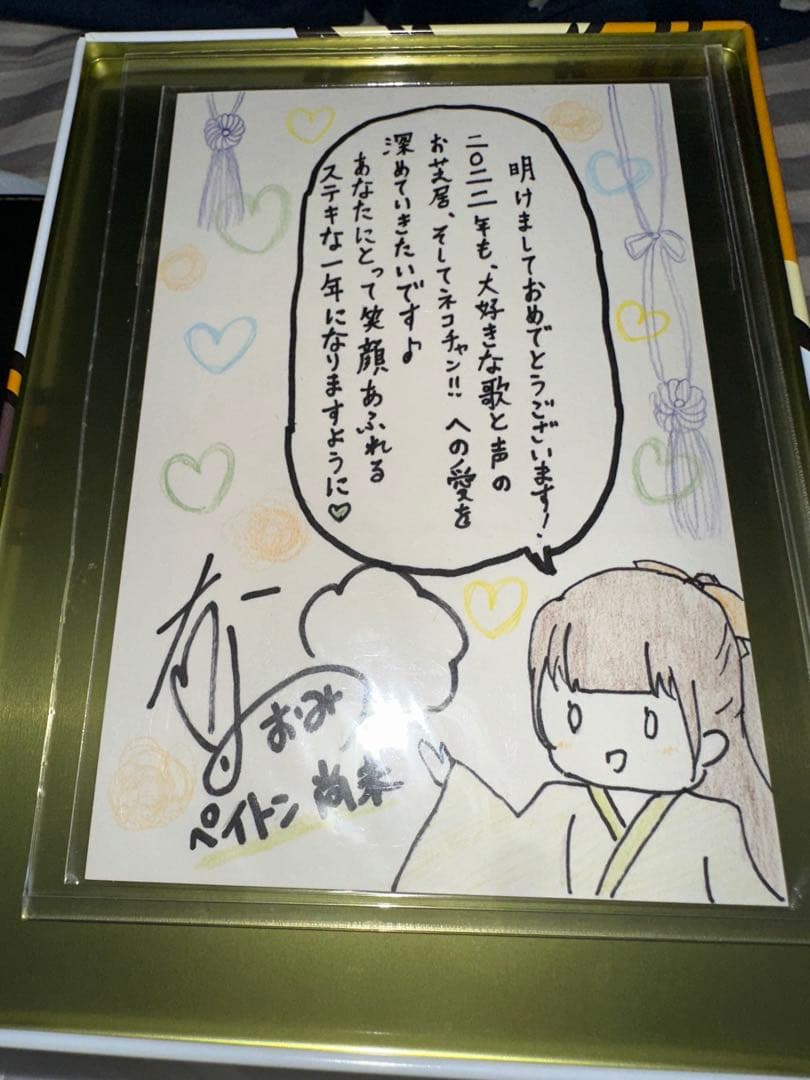 明けましておめでとうございます!
二〇二二年も、大好きな歌と声の
お芝居、そしてネコチャン!!への愛を
深めていきたいですよ
あなたにとって笑顔あふれる
ステキな一年になりますように♡
おみ
ペイトン 尚未